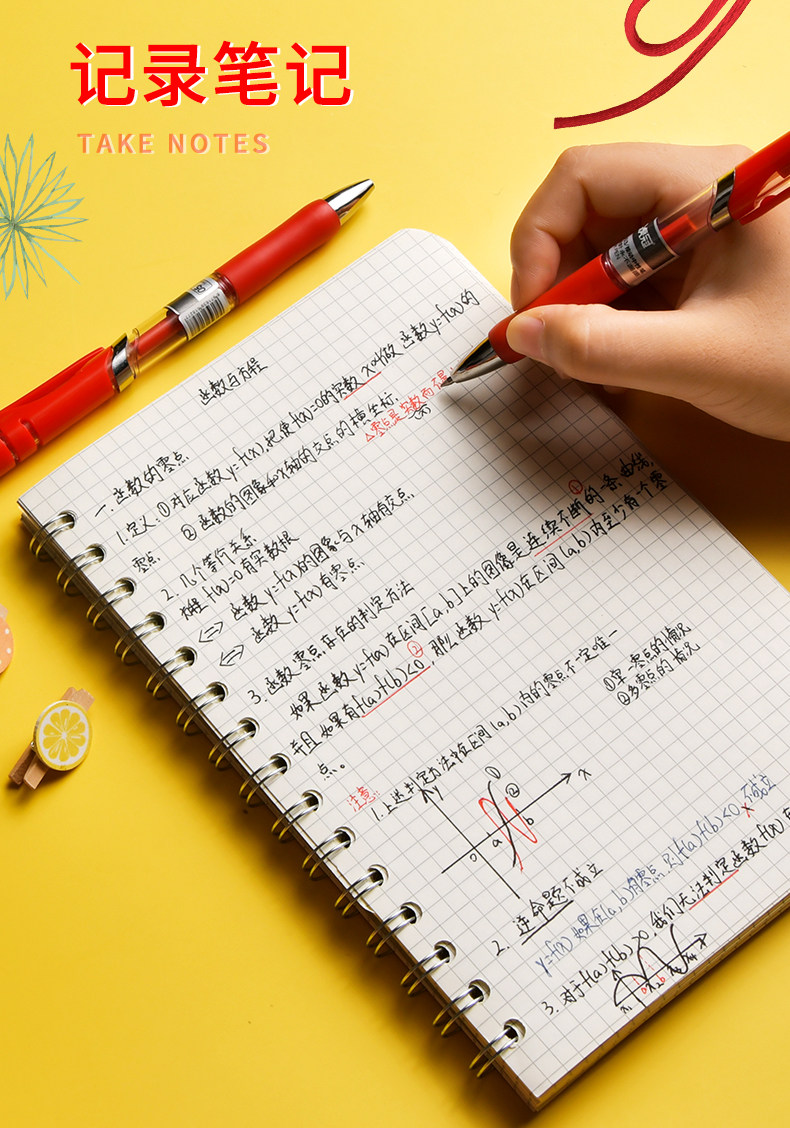 记录笔记
TAKE NOTES
函数与方程
一.函数的零点
1.定义:①对应函数y=f(x),把使f(x)=0的实数x叫做 函数y=f(x)的
零点 ②函数的图象和x轴的交点的横坐标.
△零点是实数而不是
2.几个等价关系
方程f(x)=0有实数根
⇔ 函数y=f(x)的图象与x轴有交点.
⇔ 函数y=f(x)有零点.
3.函数零点存在的判定方法
如果函数y=f(x)在区间[a,b]上的图像是连续不断的一条曲线,
①
并且如果有f(a)f(b)<0,那么函数y=f(x)在区间(a,b)内至少有一个零
②
点。
注意:
1.上述判定方法中在区间(a,b)内的零点不一定唯一
①单一零点的情况
②多零点的情况
y ① ② x
0 a b
2. 逆命题不成立
y=f(x)如果在(a,b)有零点,则f(a)f(b)<0不成立
3.对于f(a)f(b)>0,我们无法判定函数f(x)